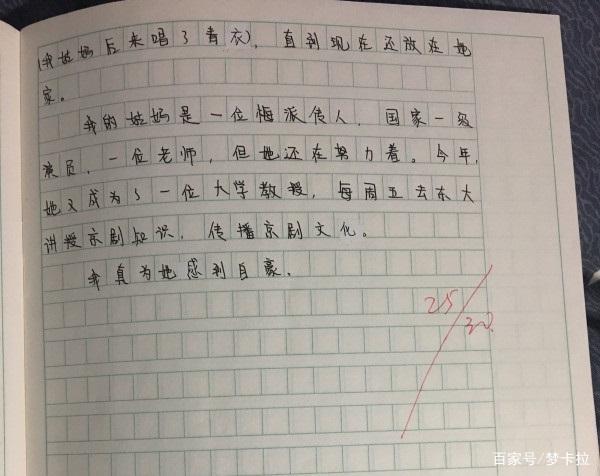 (我姑妈后来唱了青衣),直到现在还放在她
家。
我的姑妈是一位梅派传人,国家一级
演员,一位老师,但她还在努力着。今年,
她又成为了一位大学教授,每周五去东大
讲授京剧知识,传播京剧文化。
我真为她感到自豪.
25/30
百家号/梦卡拉